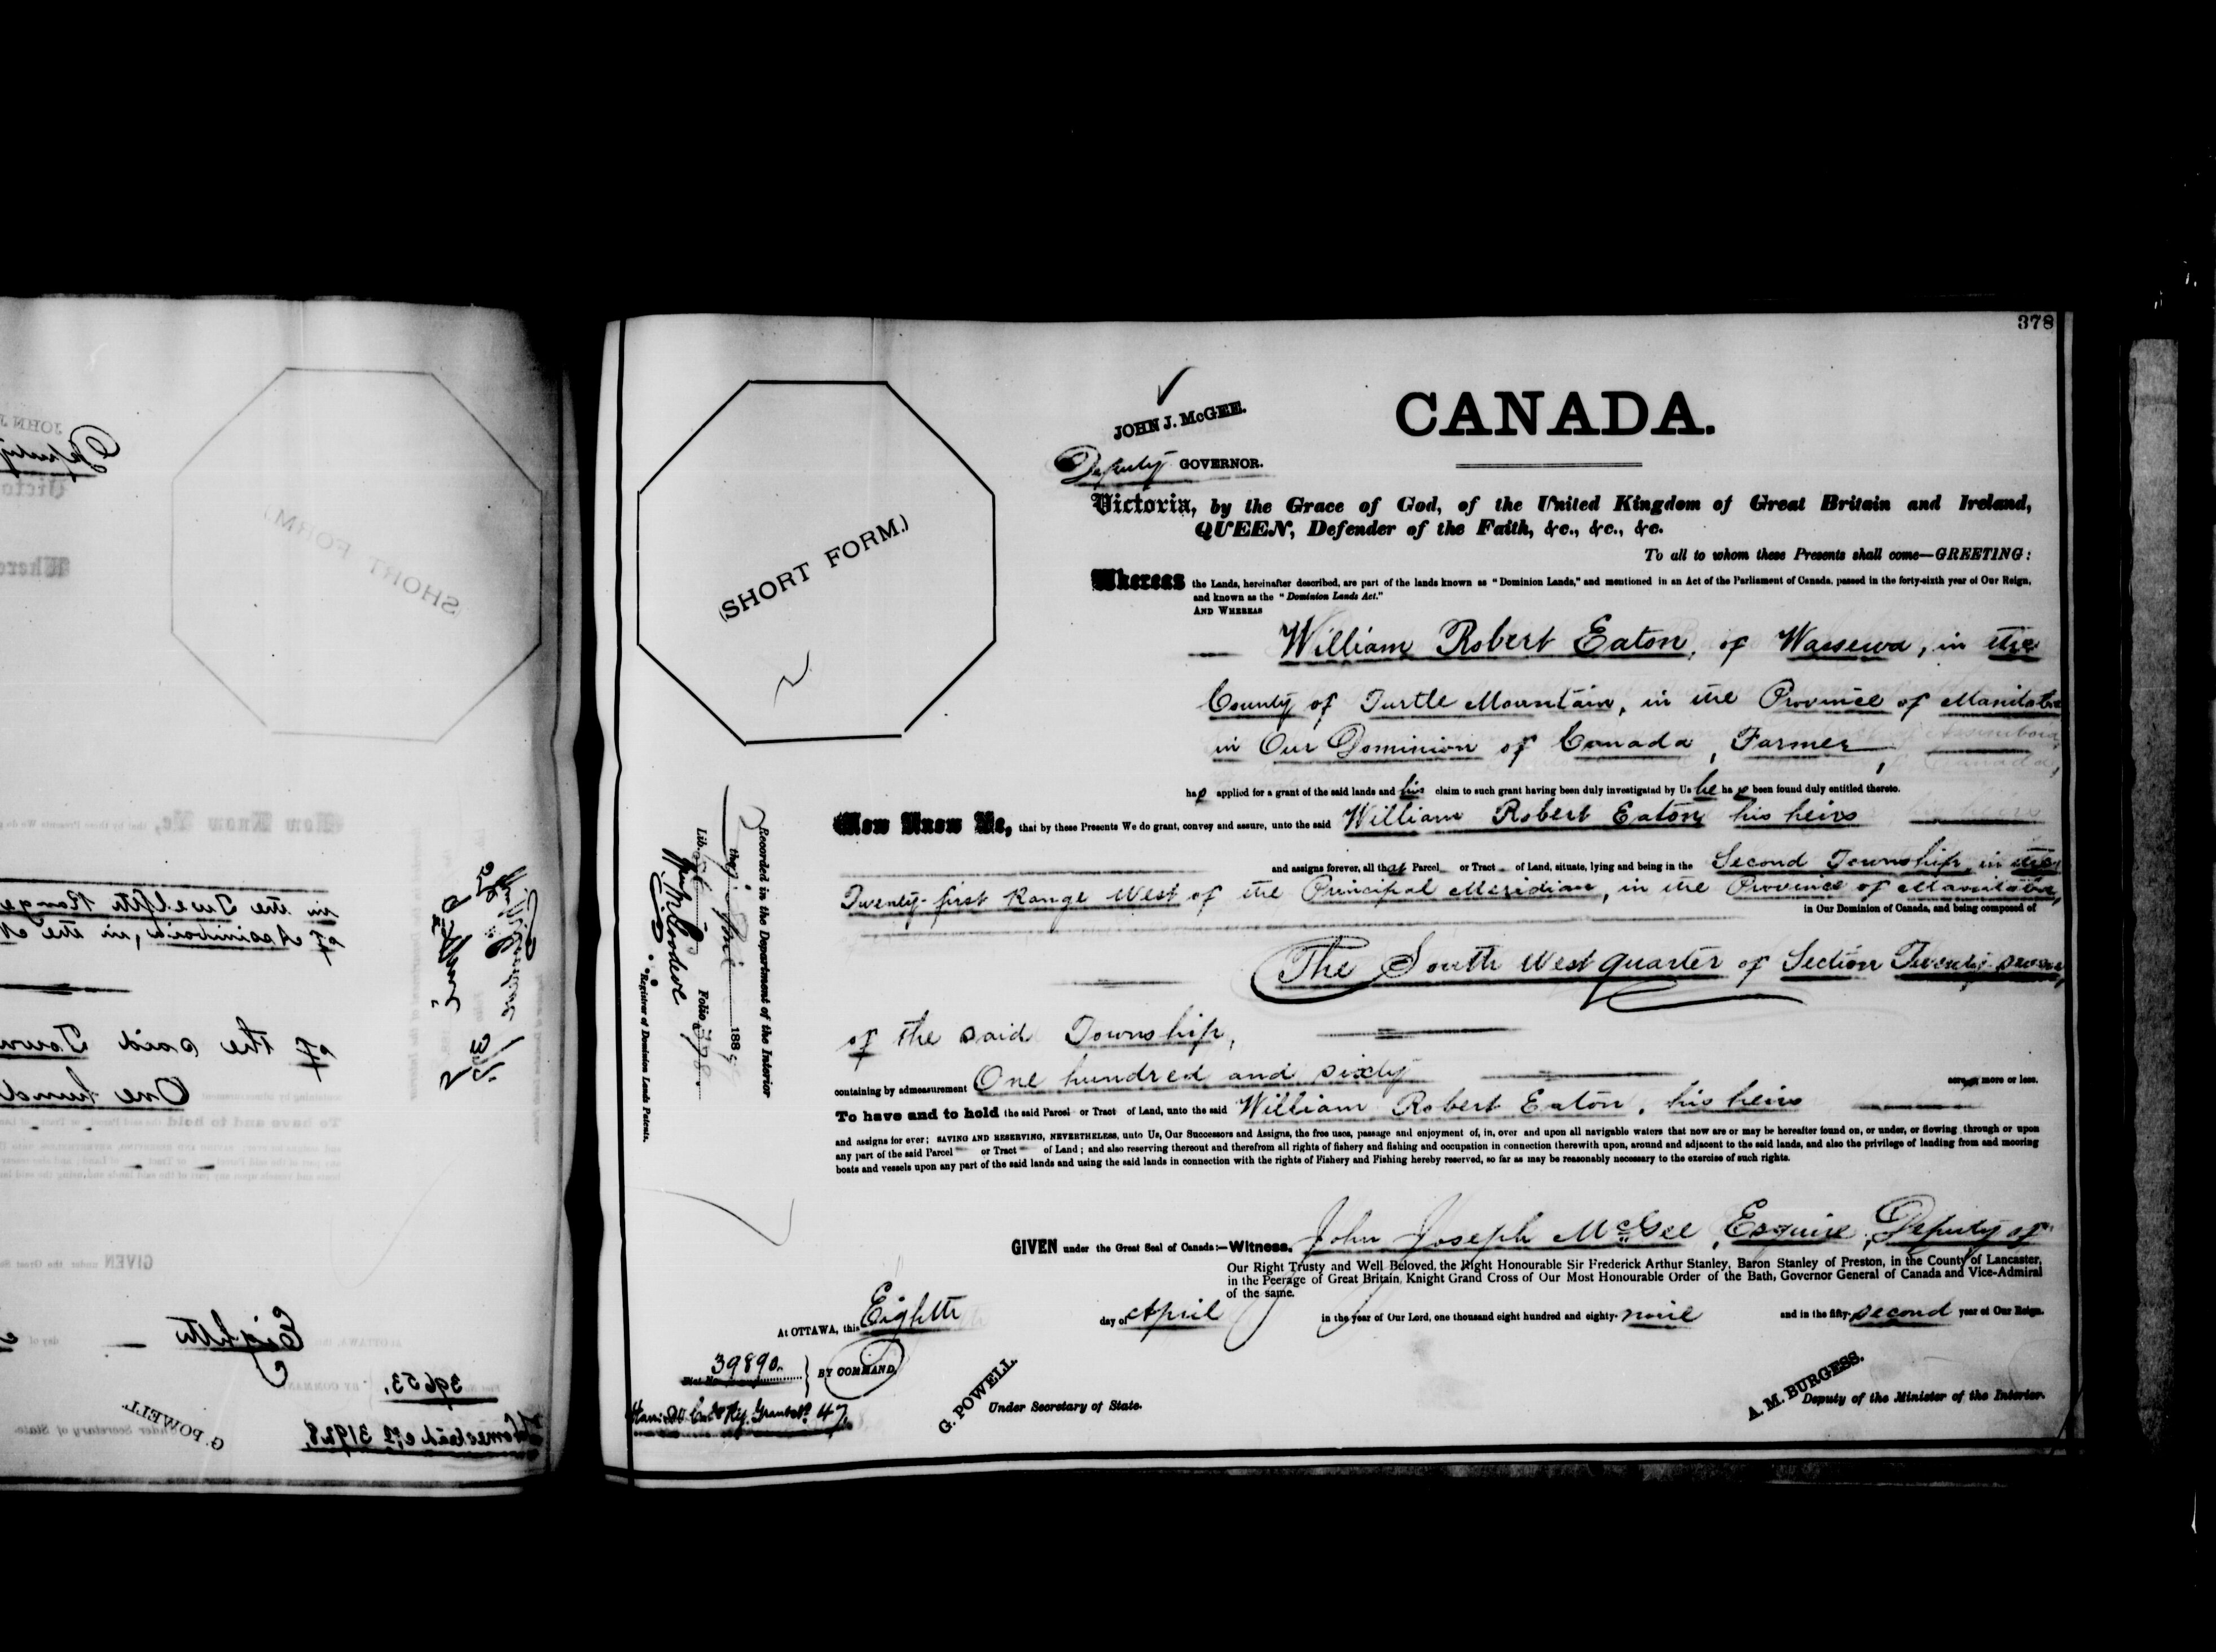 378
CANADA.
JOHN J. McGEE.
Deputy GOVERNOR.
(SHORT FORM.)
Victoria, by the Grace of God, of the United Kingdom of Great Britain and Ireland,
QUEEN, Defender of the Faith, &c., &c., &c.
To all to whom these Presents shall come—GREETING:
Whereas the Lands, hereinafter described, are part of the lands known as "Dominion Lands," and mentioned in an Act of the Parliament of Canada, passed in the forty-sixth year of Our Reign,
and known as the "Dominion Lands Act."
AND WHEREAS
William Robert Eaton, of Wassewa, in the
County of Turtle Mountain, in the Province of Manitoba
in Our Dominion of Canada, Farmer,
has applied for a grant of the said lands and his claim to such grant having been duly investigated by Us he has been found duly entitled thereto.
Now Know Ye, that by these Presents We do grant, convey and assure, unto the said William Robert Eaton his heirs
and assigns forever, all that Parcel or Tract of Land, situate, lying and being in the Second Township, in the
Twenty-first Range West of the Principal Meridian, in the Province of Manitoba,
in Our Dominion of Canada, and being composed of
The South West quarter of Section Twenty-
of the said Township,
containing by admeasurement One hundred and sixty acres more or less.
To have and to hold the said Parcel or Tract of Land, unto the said William Robert Eaton, his heirs
and assigns for ever; SAVING AND RESERVING, NEVERTHELESS, unto Us, Our Successors and Assigns, the free uses, passage and enjoyment of, in, over and upon all navigable waters that now are or may be hereafter found on, or under, or flowing through or upon
any part of the said Parcel or Tract of Land; and also reserving thereout and therefrom all rights of fishery and fishing and occupation in connection therewith upon, around and adjacent to the said lands, and also the privilege of landing from and mooring
boats and vessels upon any part of the said lands and using the said lands in connection with the rights of Fishery and Fishing hereby reserved, so far as may be reasonably necessary to the exercise of such rights.
GIVEN under the Great Seal of Canada:—Witness, John Joseph McGee, Esquire, Deputy of
Our Right Trusty and Well Beloved, the Right Honourable Sir Frederick Arthur Stanley, Baron Stanley of Preston, in the County of Lancaster,
in the Peerage of Great Britain, Knight Grand Cross of Our Most Honourable Order of the Bath, Governor General of Canada and Vice-Admiral
of the same.
At OTTAWA, this Eighth day of April in the year of Our Lord, one thousand eight hundred and eighty-nine and in the fifty-second year of Our Reign.
39890.
BY COMMAND,
Grant No. 47.
G. POWELL.
Under Secretary of State.
A. M. BURGESS.
Deputy of the Minister of the Interior.
Recorded in the Department of the Interior
the 1889
Lib. Folio 378.
Registrar of Dominion Lands Patents.
in the Twelfth Range
of Assiniboia, in the
of the said Town
One hund
Eighth
39653.
Homestead No. 31928
G. POWELL.
Under Secretary of State